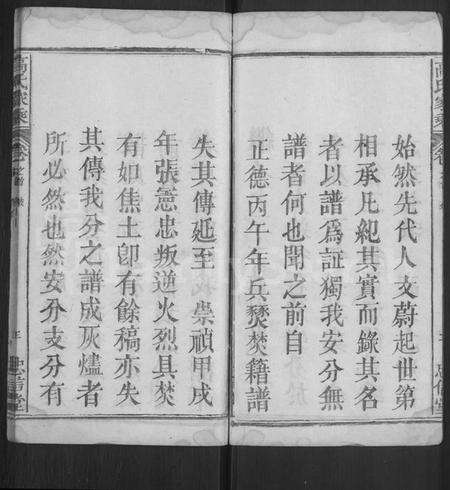 始然先代人文蔚起世第
相承凡紀其實而錄其名
者以譜爲証獨我安分無
譜者何也聞之前自
正德丙午年兵燹焚籍譜
失其傳延至 崇禎甲戌
年張憲忠叛逆火烈具焚
有如焦土卽有餘稿亦失
其傳我分之譜成灰燼者
所必然也然安分支分有
高氏家乘
忠信堂